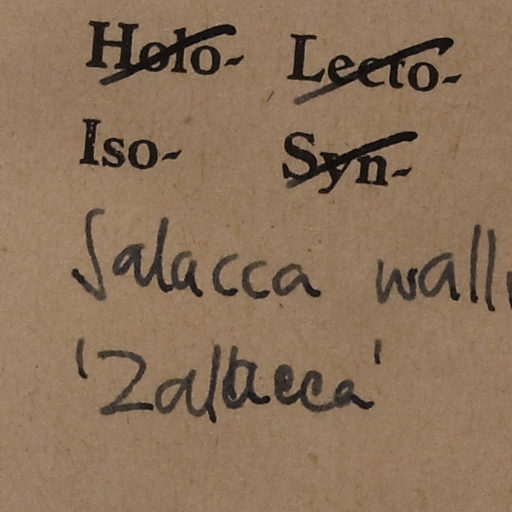 Holo- Lecto-
Iso- Syn-
Salacca wall
'Zalacca'